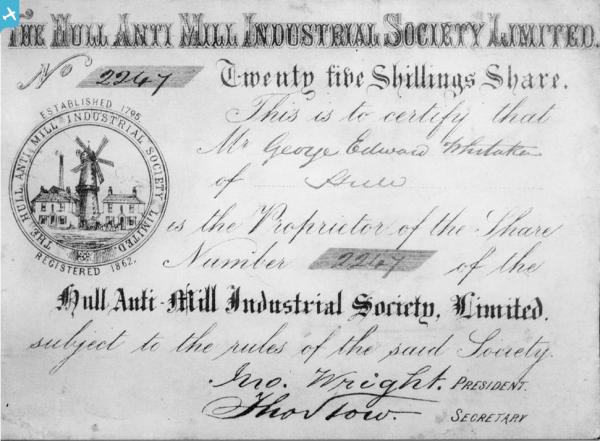 THE HULL ANTI MILL INDUSTRIAL SOCIETY LIMITED.
No 2247 Twenty five Shillings Share.
This is to certify that
Mr George Edward Whitaker
of Hull
is the Proprietor of the Share
Number 2247 of the
Hull Anti-Mill Industrial Society, Limited.
subject to the rules of the said Society.
Jno. Wright. PRESIDENT.
Thos Stow. SECRETARY
ESTABLISHED 1795.
THE HULL ANTI MILL INDUSTRIAL SOCIETY LIMITED.
REGISTERED 1862.